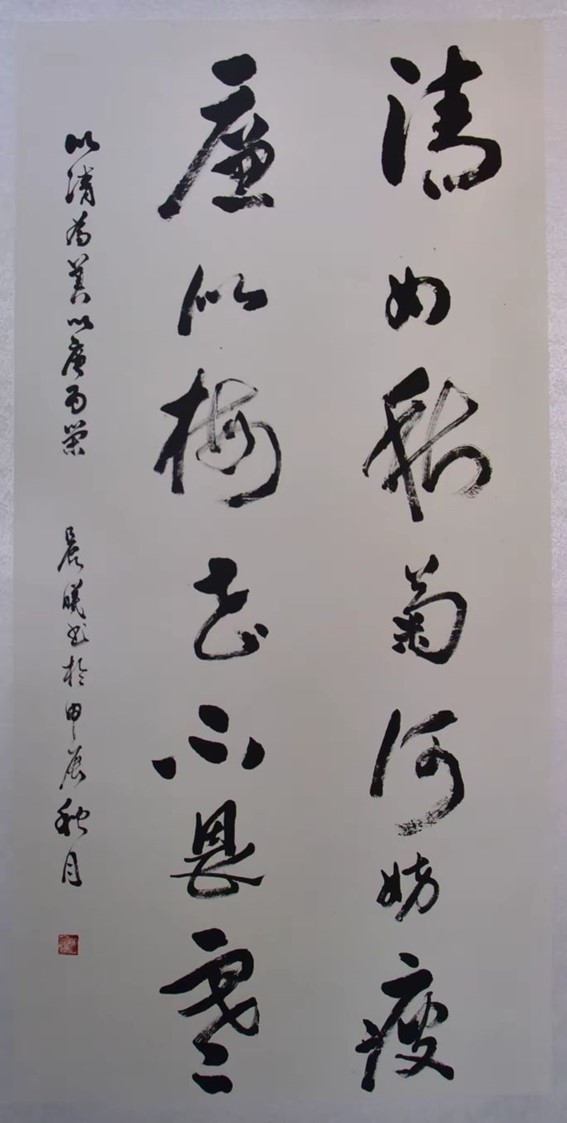 清如秋菊何妨瘦
廉似梅花不畏寒
以清为美以廉为荣 晨曦书於甲辰秋月